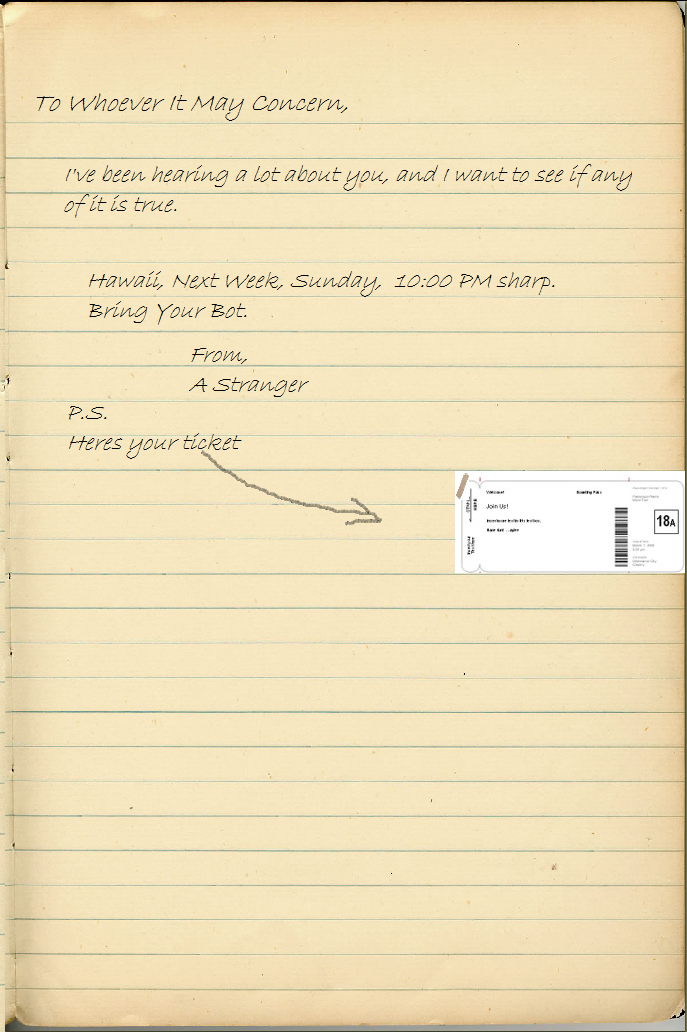 To Whoever It May Concern,
I've been hearing a lot about you, and I want to see if any
of it is true.
Hawaii, Next Week, Sunday, 10:00 PM sharp.
Bring Your Bot.
From,
A Stranger
P.S.
Heres your ticket
Welcome!
Boarding Pass
Join Us!
18A